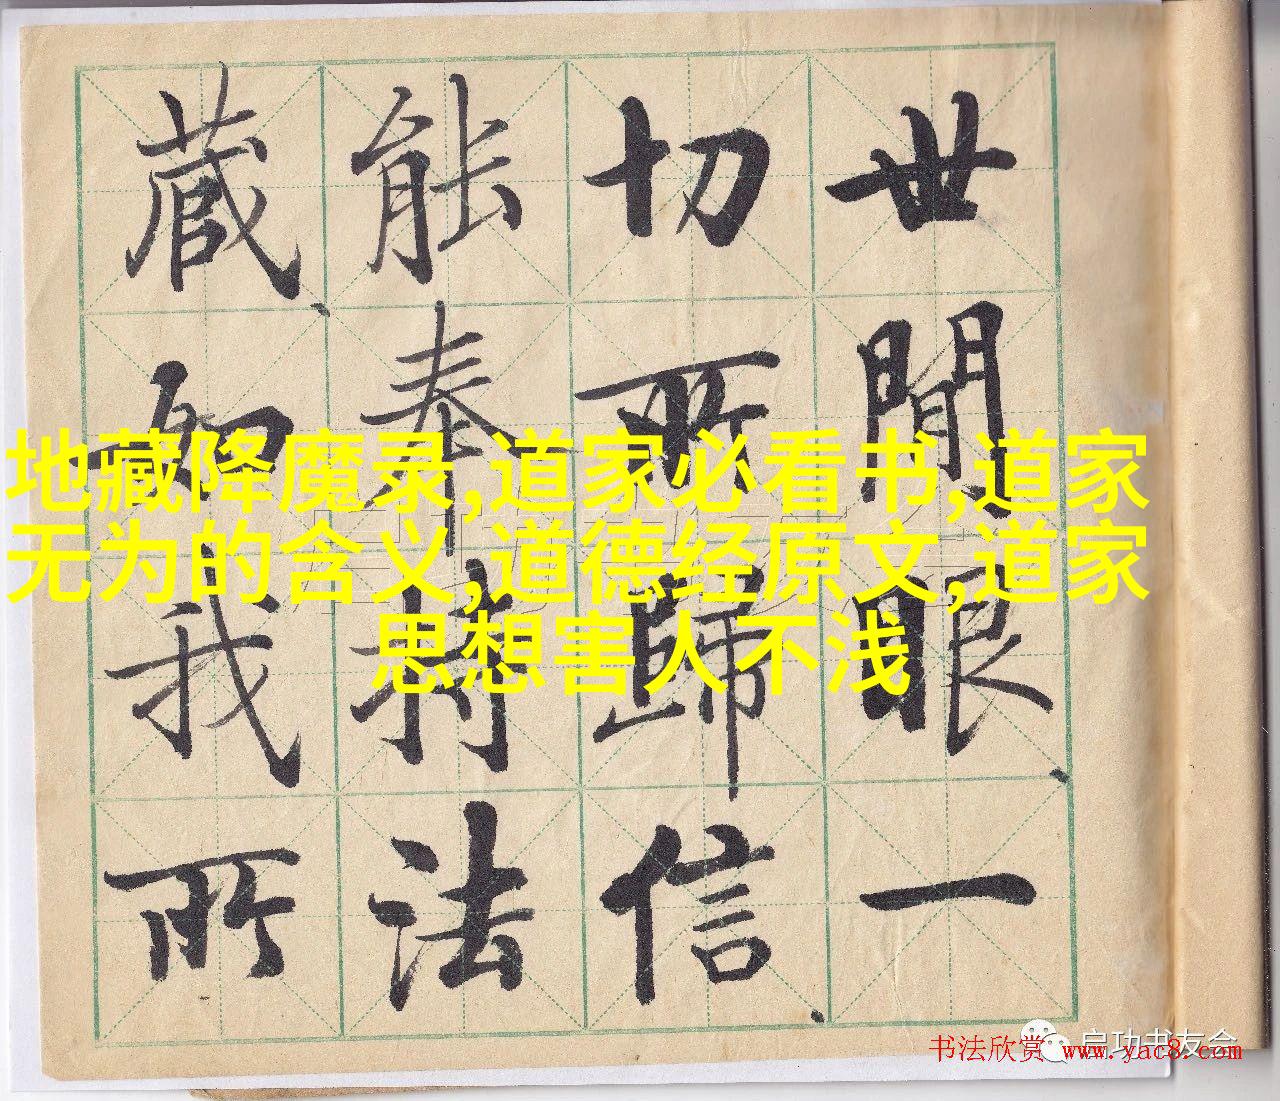 世間眼一
切所歸信
能奉持法
藏如我所
地藏降魔录,道家必看书,道家
无为的含义,道德经原文,道家
思想害人不浅
启功书友会
书法欣赏 www.yac8.com